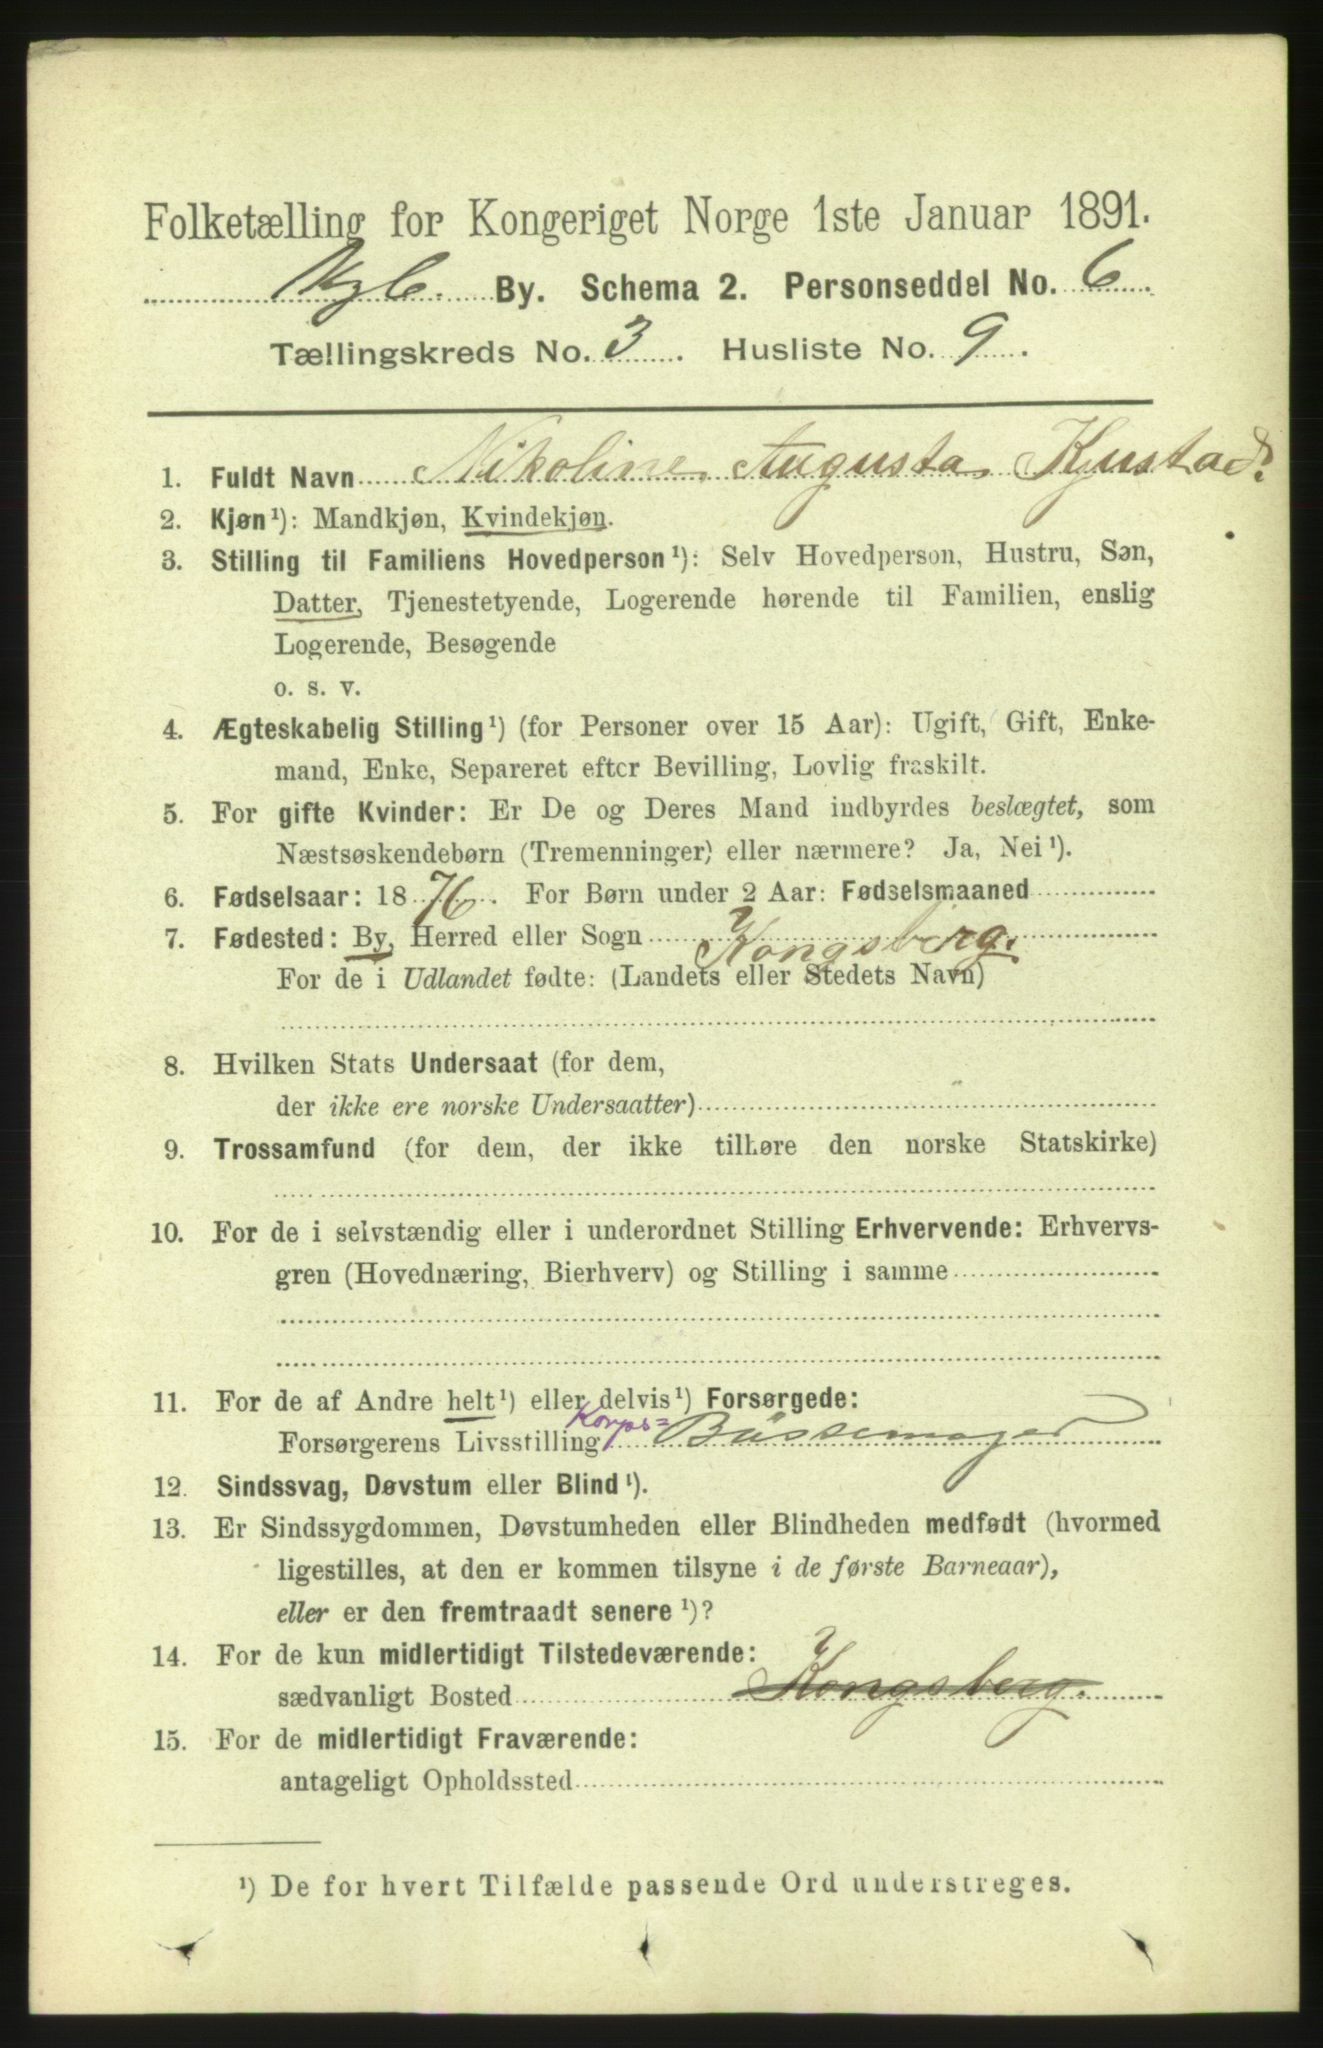 Folketælling for Kongeriget Norge 1ste Januar 1891.
Kgb. By. Schema 2. Personseddel No. 6.
Tællingskreds No. 3. Husliste No. 9.
1. Fuldt Navn Nikoline Augusta Kjustad.
2. Kjøn¹): Mandkjøn, Kvindekjøn.
3. Stilling til Familiens Hovedperson¹): Selv Hovedperson, Hustru, Søn,
Datter, Tjenestetyende, Logerende hørende til Familien, enslig
Logerende, Besøgende
o. s. v.
4. Ægteskabelig Stilling¹) (for Personer over 15 Aar): Ugift, Gift, Enke-
mand, Enke, Separeret efter Bevilling, Lovlig fraskilt.
5. For gifte Kvinder: Er De og Deres Mand indbyrdes beslægtet, som
Næstsøskendebørn (Tremenninger) eller nærmere? Ja, Nei¹).
6. Fødselsaar: 1876. For Børn under 2 Aar: Fødselsmaaned
7. Fødested: By, Herred eller Sogn Kongsberg.
For de i Udlandet fødte: (Landets eller Stedets Navn)
8. Hvilken Stats Undersaat (for dem,
der ikke ere norske Undersaatter)
9. Trossamfund (for dem, der ikke tilhøre den norske Statskirke)
10. For de i selvstændig eller i underordnet Stilling Erhvervende: Erhvervs-
gren (Hovednæring, Bierhverv) og Stilling i samme
11. For de af Andre helt¹) eller delvis¹) Forsørgede:
Forsørgerens Livsstilling Korps= Bøssemager
12. Sindssvag, Døvstum eller Blind¹).
13. Er Sindssygdommen, Døvstumheden eller Blindheden medfødt (hvormed
ligestilles, at den er kommen tilsyne i de første Barneaar),
eller er den fremtraadt senere¹)?
14. For de kun midlertidigt Tilstedeværende:
sædvanligt Bosted Kongsberg.
15. For de midlertidigt Fraværende:
antageligt Opholdssted
¹) De for hvert Tilfælde passende Ord understreges.